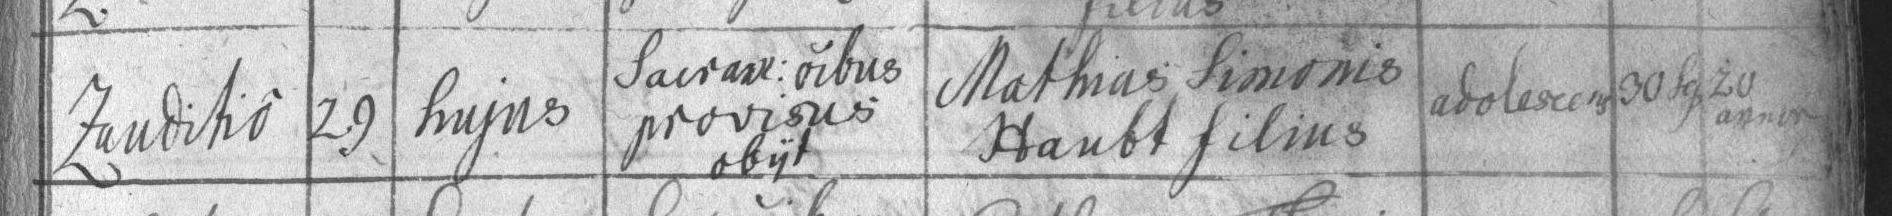 filius
Zauditiô 29 hujus Sacram: oîbus provisus obijt Mathias Simonis Haubt filius adolescens 30 hj 20 annor